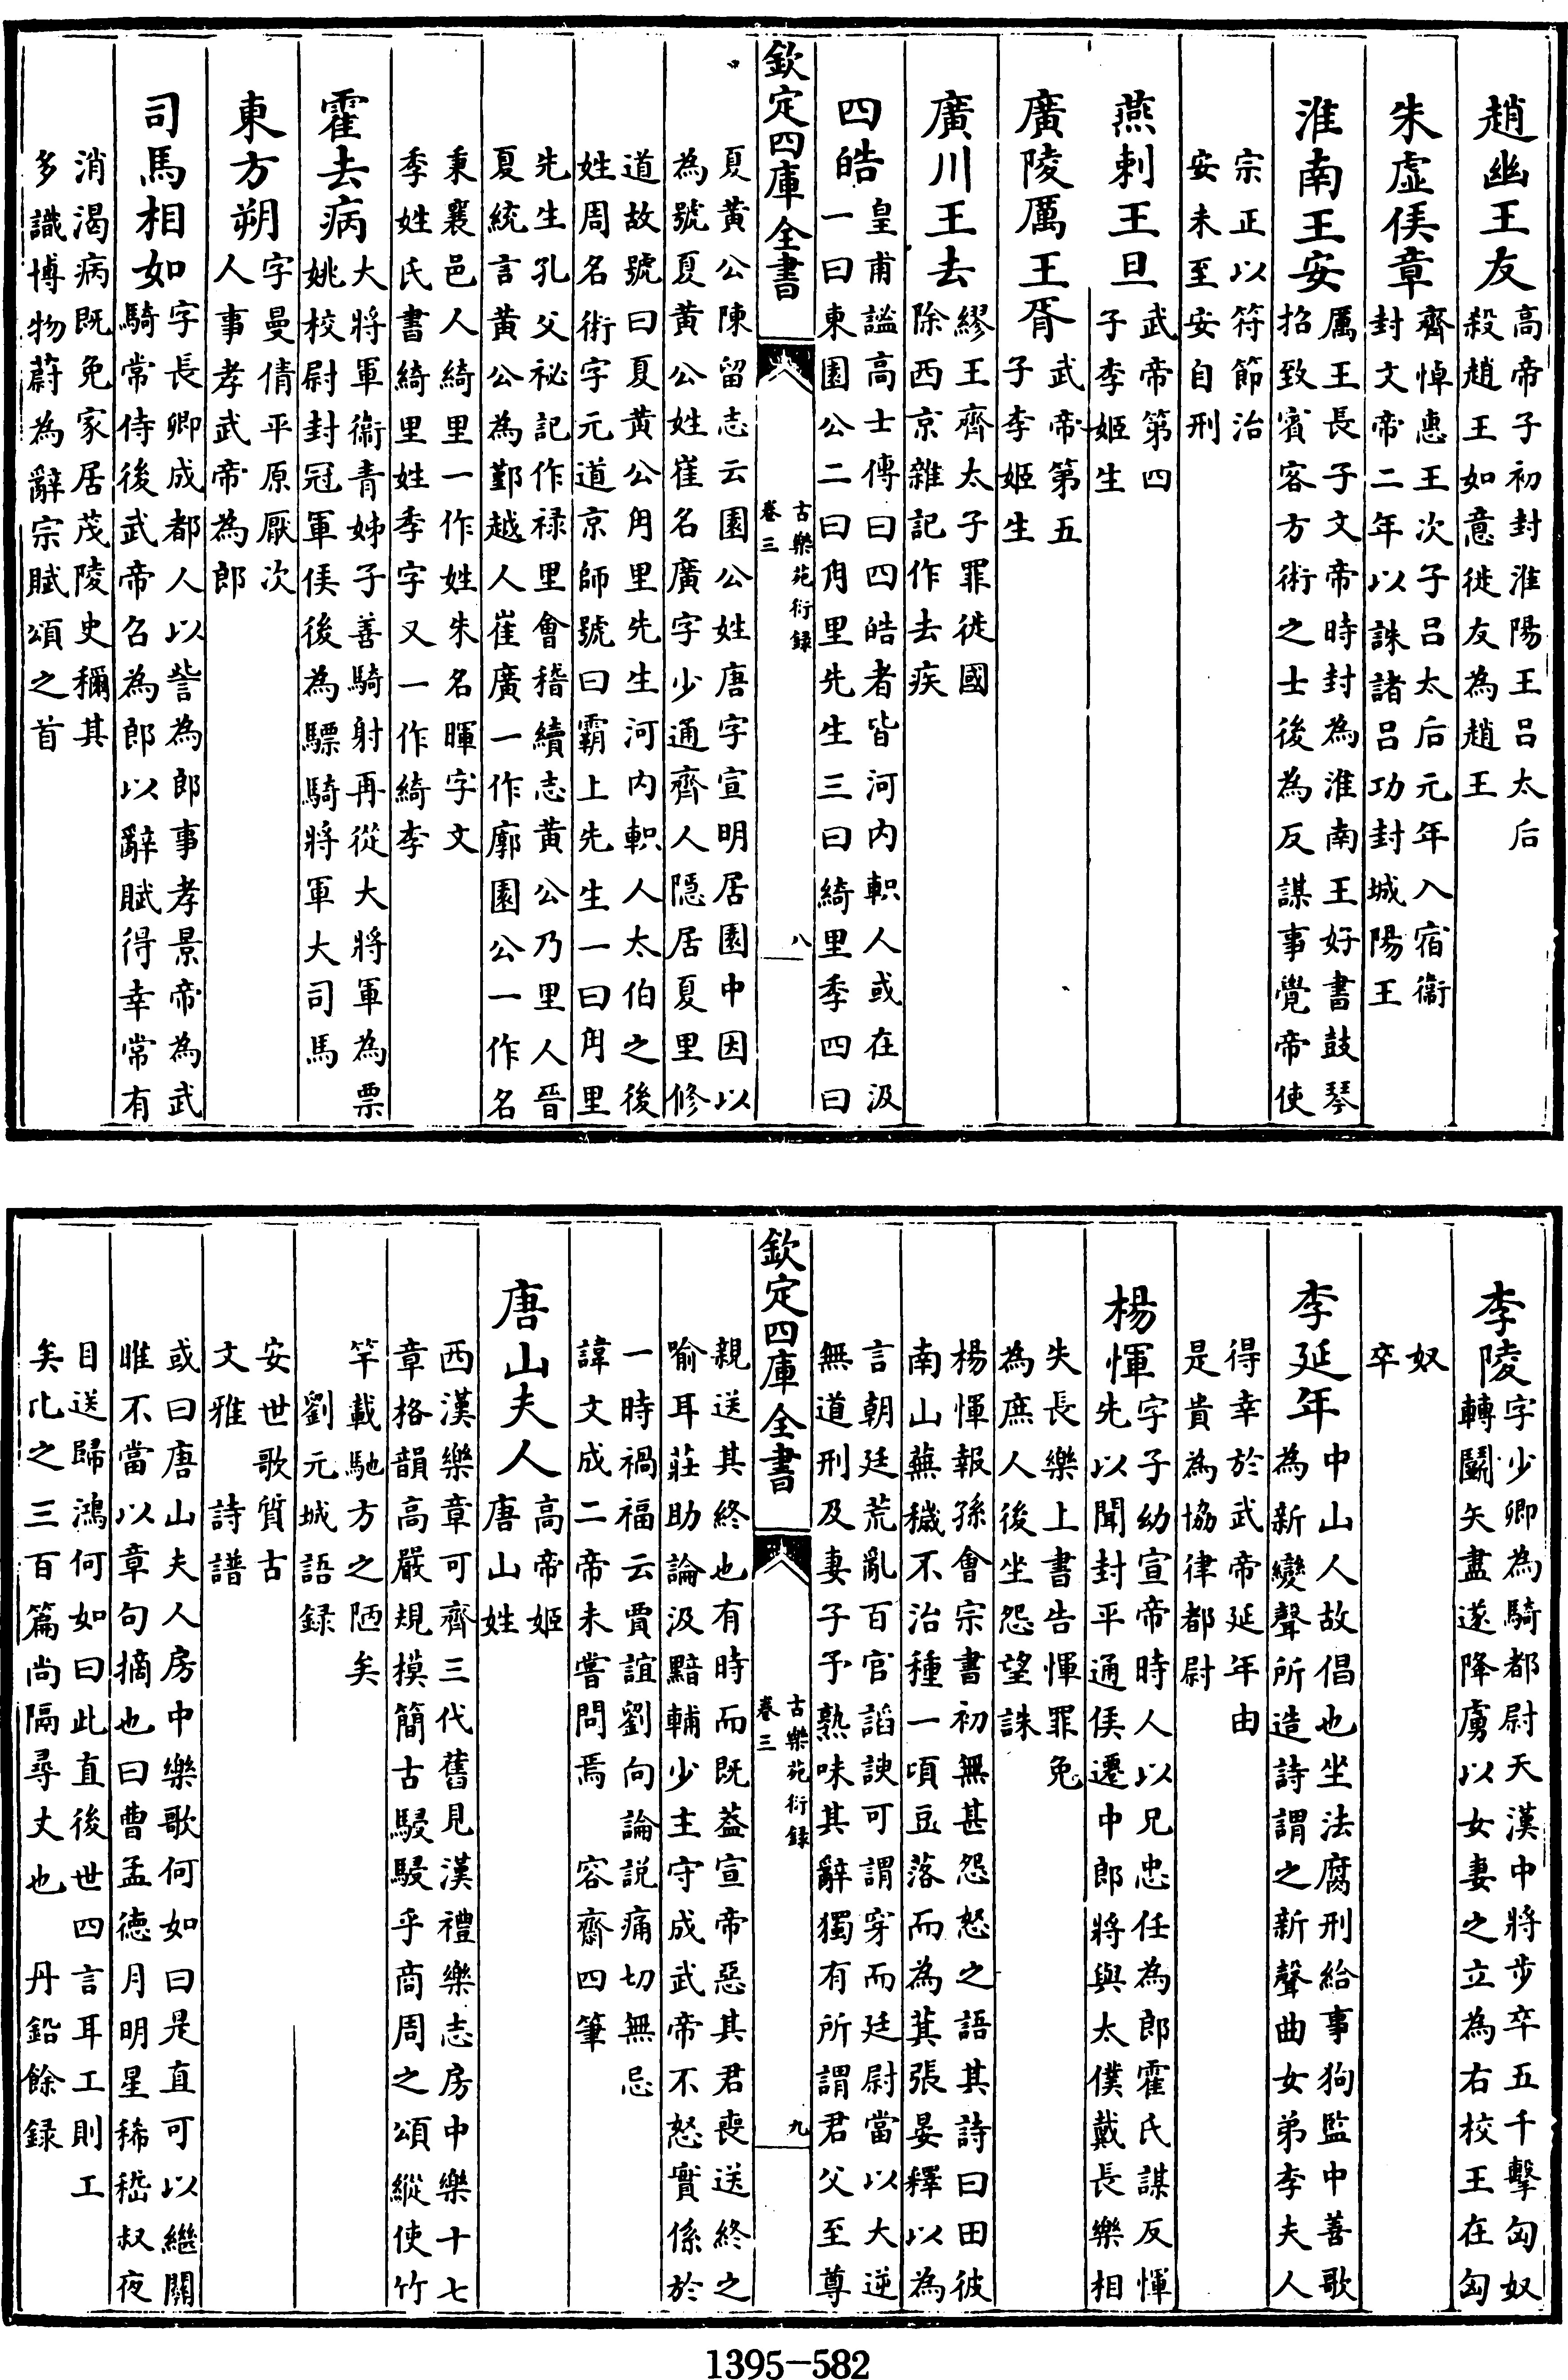 趙幽王友高帝子初封淮陽王呂太后
殺趙王如意徙友為趙王
朱虛侯章齊悼惠王次子呂太后元年入宿衞
封文帝二年以誅諸呂功封城陽王
淮南王安厲王長子文帝時封為淮南王好書鼓琴
招致賓客方術之士後為反謀事覺帝使
宗正以符節治
安未至安自刑
燕剌王旦武帝第四
子李姬生
廣陵厲王胥武帝第五
子李姬生
廣川王去繆王齊太子罪徙國
除西京雜記作去疾
四皓皇甫謐高士傳曰四皓者皆河内軹人或在汲
一曰東園公二曰甪里先生三曰綺里季四曰
欽定四庫全書
古樂苑衍録
卷三
八
夏黄公陳留志云園公姓唐字宣明居園中因以
為號夏黄公姓崔名廣字少通齊人隠居夏里修
道故號曰夏黄公甪里先生河内軹人太伯之後
姓周名術字元道京師號曰霸上先生一曰甪里
先生孔父祕記作禄里會稽續志黄公乃里人晉
夏統言黄公為鄞越人崔廣一作廓園公一作名
秉襄邑人綺里一作姓朱名暉字文
季姓氏書綺里姓季字又一作綺李
霍去病大將軍衞青姊子善騎射再從大將軍為票
姚校尉封冠軍侯後為驃騎將軍大司馬
東方朔字曼倩平原厭次
人事孝武帝為郎
司馬相如字長卿成都人以訾為郎事孝景帝為武
騎常侍後武帝召為郎以辭賦得幸常有
消渴病既免家居茂陵史稱其
多識博物蔚為辭宗賦頌之首
李陵字少卿為騎都尉天漢中將步卒五千擊匈奴
轉鬭矢盡遂降虜以女妻之立為右校王在匈
奴
卒
李延年中山人故倡也坐法腐刑給事狗監中善歌
為新變聲所造詩謂之新聲曲女弟李夫人
得幸於武帝延年由
是貴為協律都尉
楊惲字子幼宣帝時人以兄忠任為郎霍氏謀反惲
先以聞封平通侯遷中郎將與太僕戴長樂相
失長樂上書告惲罪免
為庶人後坐怨望誅
楊惲報孫會宗書初無甚怨怒之語其詩曰田彼
南山蕪穢不治種一頃豆落而為萁張晏釋以為
言朝廷荒亂百官謟諛可謂穿而廷尉當以大逆
無道刑及妻子予熟味其辭獨有所謂君父至尊
欽定四庫全書
古樂苑衍録
卷三
九
親送其終也有時而既葢宣帝惡其君喪送終之
喻耳莊助論汲黯輔少主守成武帝不怒實係於
一時禍福云賈誼劉向論説痛切無忌
諱文成二帝未嘗問焉 容齋四筆
唐山夫人高帝姬
唐山姓
西漢樂章可齊三代舊見漢禮樂志房中樂十七
章格韻高嚴規模簡古駸駸乎商周之頌縱使竹
竿載馳方之陋矣
劉元城語録
安世歌質古
文雅 詩譜
或曰唐山夫人房中樂歌何如曰是直可以繼關
雎不當以章句摘也曰曹孟徳月明星稀嵇叔夜
目送歸鴻何如曰此直後世四言耳工則工
矣比之三百篇尚隔尋丈也 丹鉛餘録
1395-582